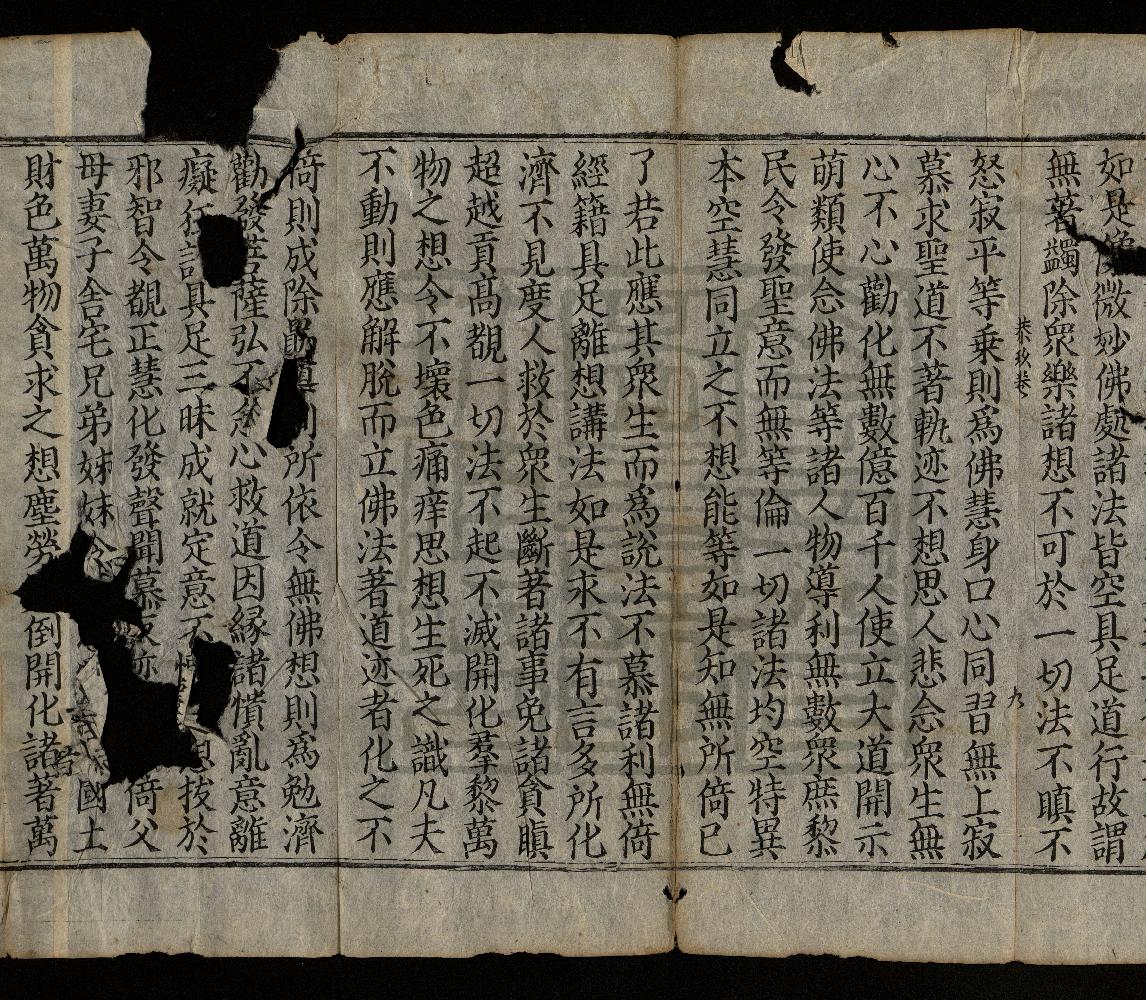 如是微妙佛處諸法皆空具足道行故謂
無著蠲除眾樂諸想不可於一切法不瞋不
恭敬恭
九
怒寂平等乗則爲佛慧身口心同習無上寂
慕求聖道不著軌迹不想思人悲念衆生無
心不心勸化無數億百千人使立大道開示
萌類使念佛法等諸人物導利無數衆庶黎
民令發聖意而無等倫一切諸法均空特異
本空慧同立之不想能等如是知無所倚已
了若此應其衆生而爲說法不慕諸利無倚
經籍具足離想講法如是求不有言多所化
濟不見度人救於衆生斷著諸事免諸貪瞋
超越貢高覩一切法不起不滅開化羣黎萬
物之想令不壞色痛痒思想生死之識凡夫
不動則應解脫而立佛法著道迹者化之不
倚則成除所依令無佛想則爲勉濟
勸發菩薩弘不心救道因緣諸憒亂意離
癡在具足三昧成就定意不技於
邪智令覩正慧化發聲聞慕迹倚父
母妻子舎宅兄弟姊妹國土
財色萬物貪求之想塵勞倒開化諸著萬